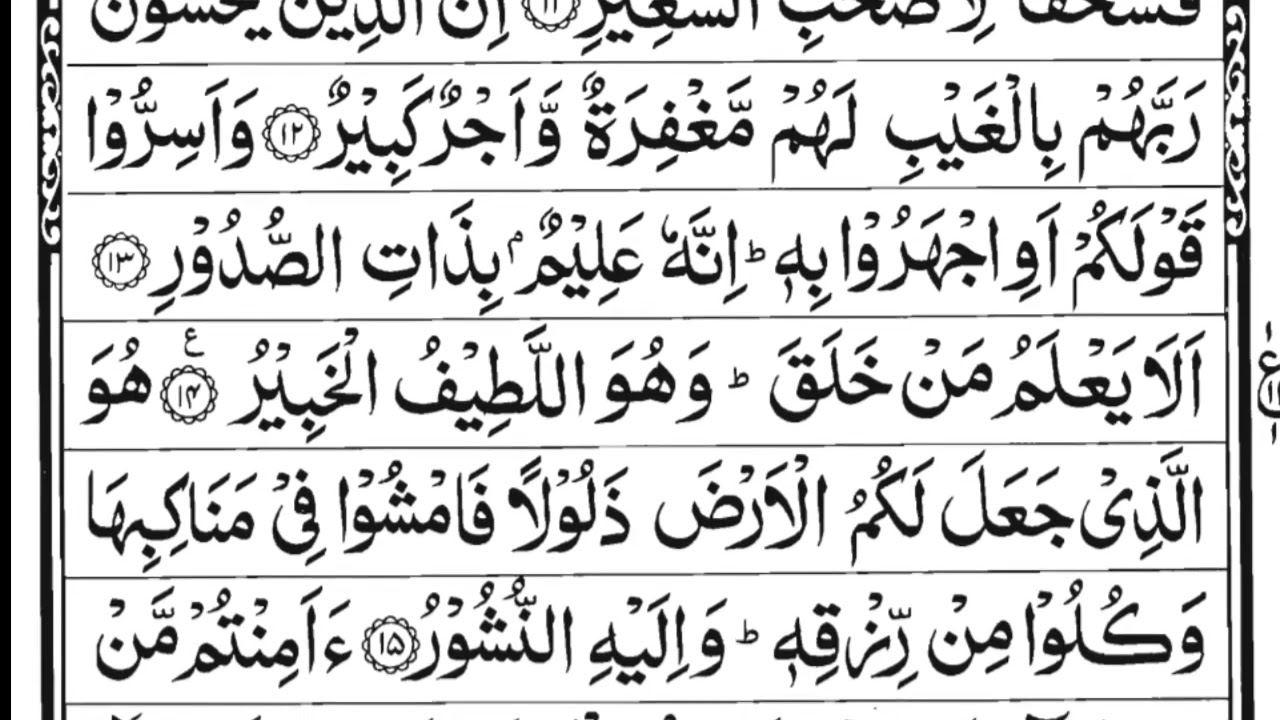 فَسُحْقًا لِّاَصْحٰبِ السَّعِيْرِ ۝۱۱ اِنَّ الَّذِيْنَ يَخْشَوْنَ
رَبَّهُمْ بِالْغَيْبِ لَهُمْ مَّغْفِرَةٌ وَّاَجْرٌ كَبِيْرٌ ۝۱۲ وَاَسِرُّوْا
قَوْلَكُمْ اَوِ اجْهَرُوْا بِهٖ ؕ اِنَّهٗ عَلِيْمٌۢ بِذَاتِ الصُّدُوْرِ ۝۱۳
اَلَا يَعْلَمُ مَنْ خَلَقَ ؕ وَهُوَ اللَّطِيْفُ الْخَبِيْرُ ۝۱۴ ع هُوَ
الَّذِيْ جَعَلَ لَكُمُ الْاَرْضَ ذَلُوْلًا فَامْشُوْا فِيْ مَنَاكِبِهَا
وَكُلُوْا مِنْ رِّزْقِهٖ ؕ وَاِلَيْهِ النُّشُوْرُ ۝۱۵ ءَاَمِنْتُمْ مَّنْ